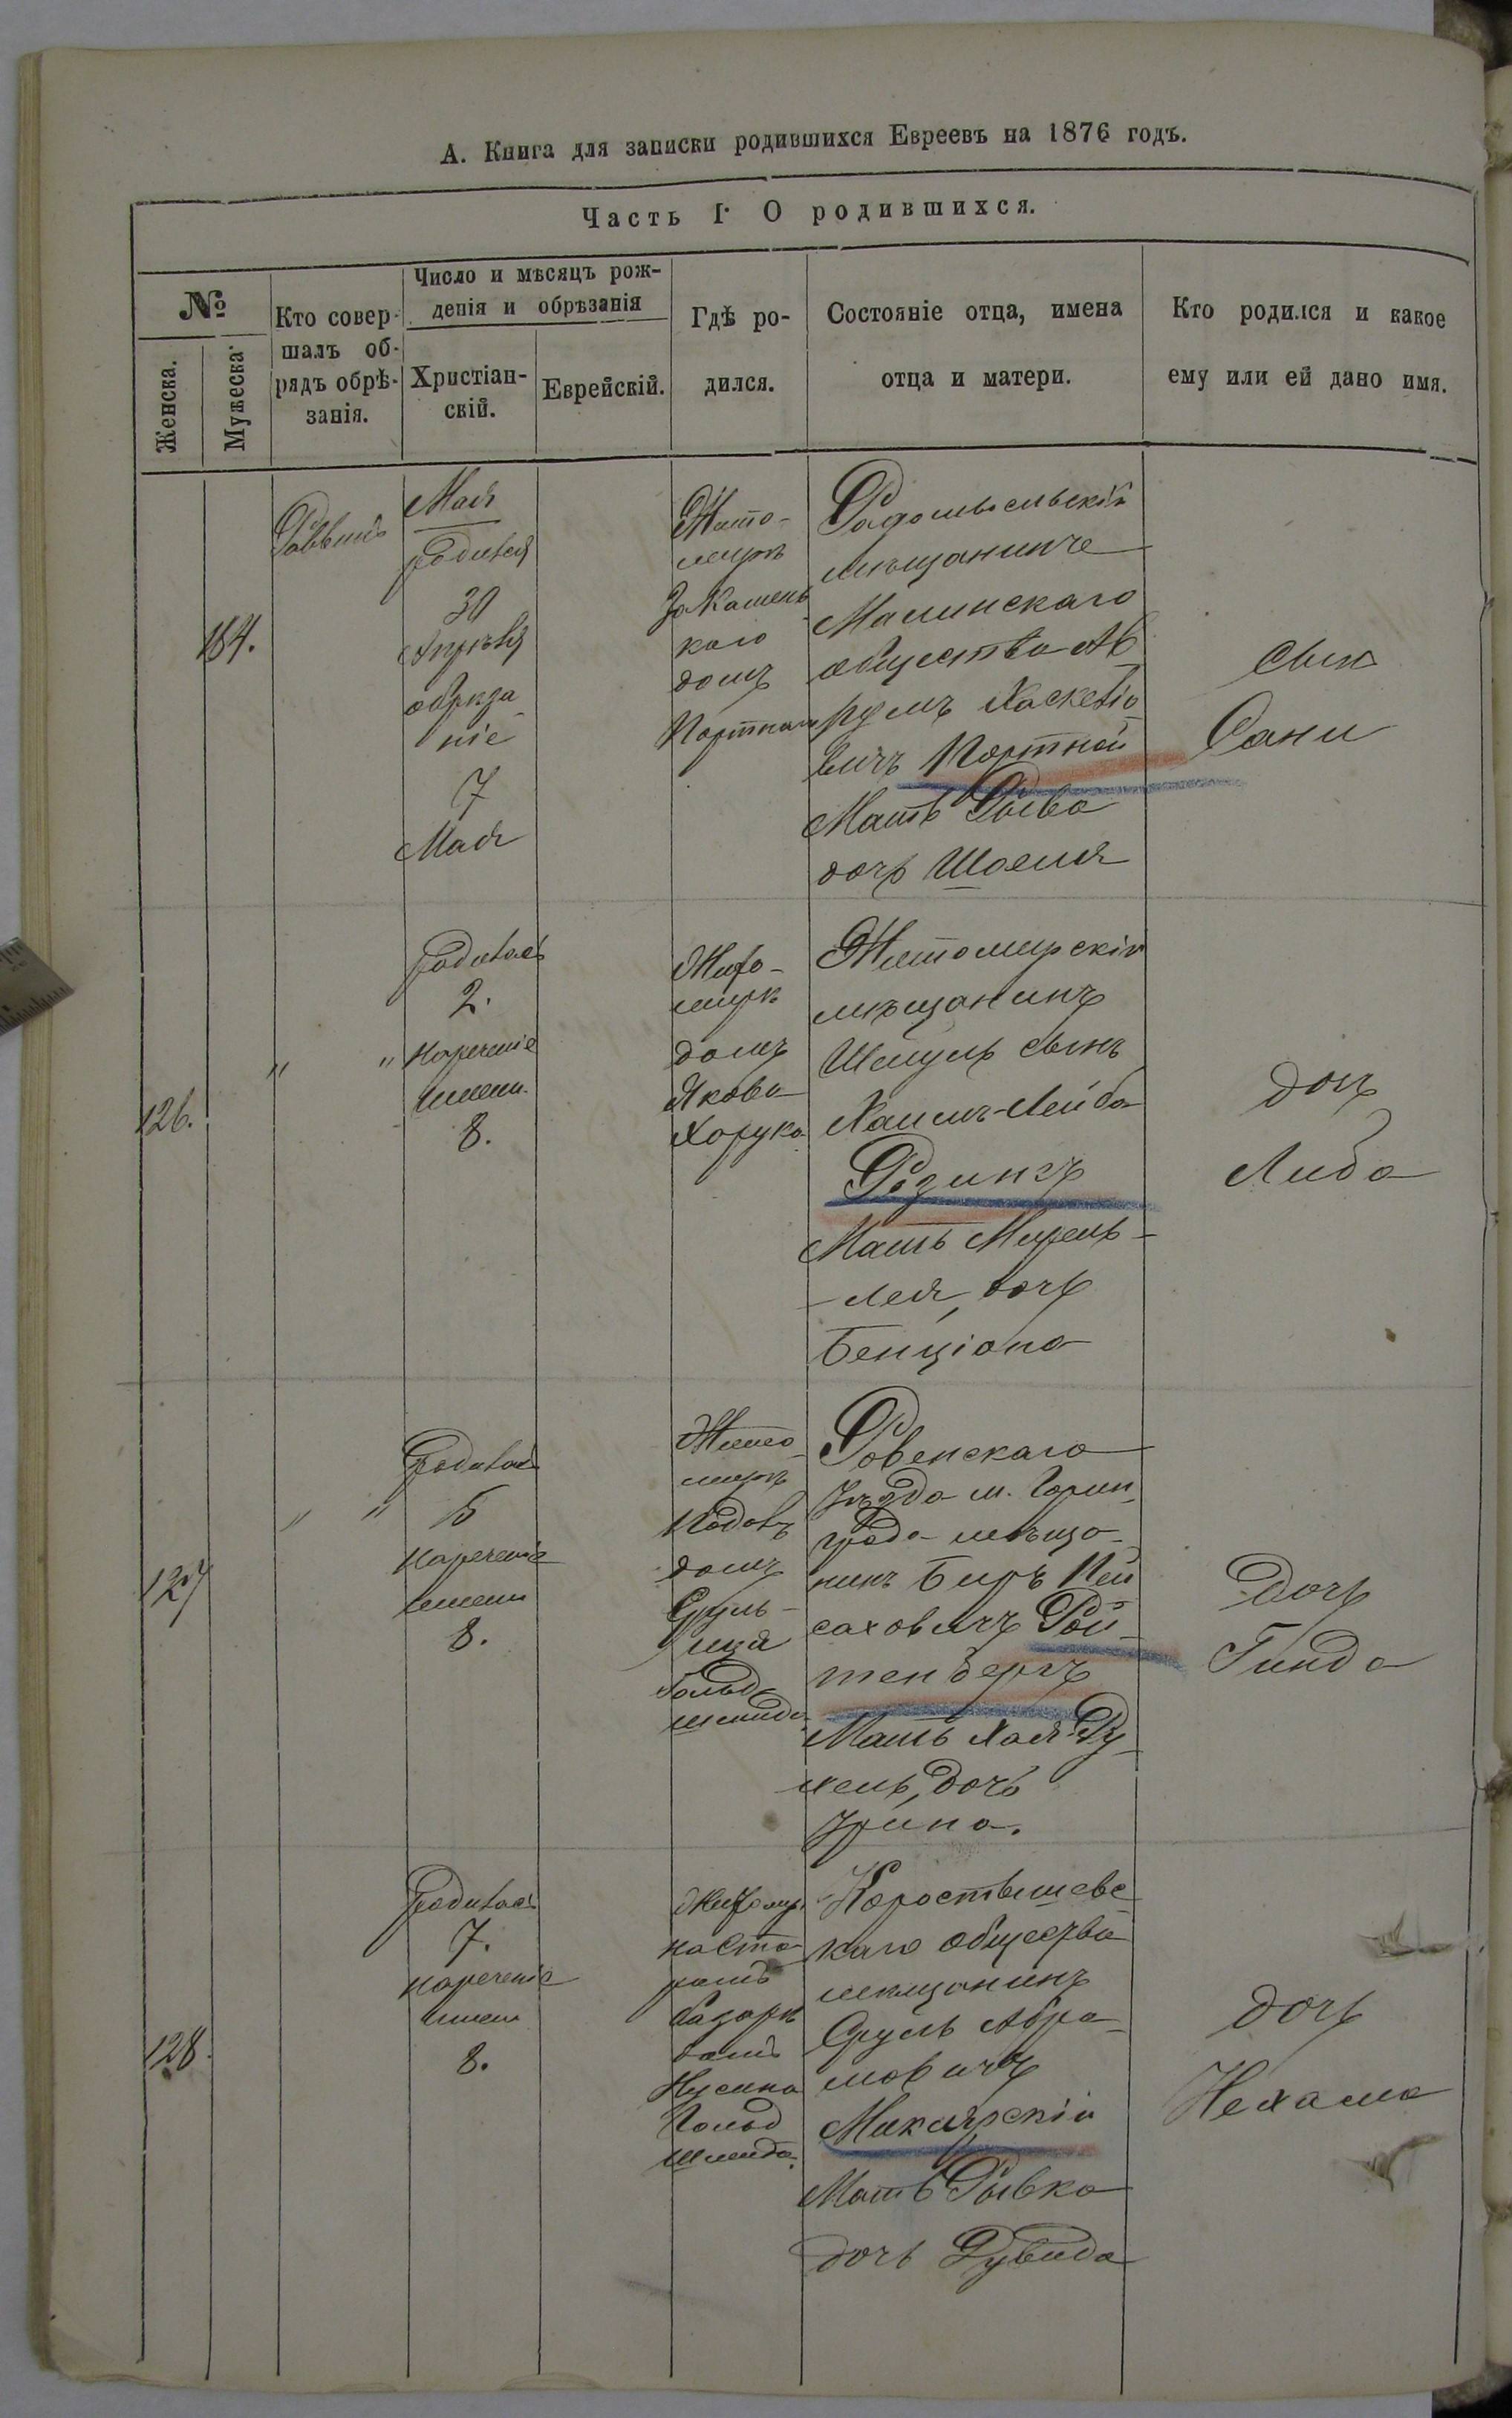 А. Книга для записки родившихся Евреевъ на 1876 годъ.
Часть I. О родившихся.
№
Женска.
Мужеска.
Кто совер-
шалъ об-
рядъ обрѣ-
занія.
Число и мѣсяцъ рож-
денія и обрѣзанія
Христіан-
скій.
Еврейскій.
Гдѣ ро-
дился.
Состояніе отца, имена
отца и матери.
Кто родился и какое
ему или ей дано имя.
184.
Раввинъ
Мая
родился
30
Апрѣля
обрѣза-
ніе
7
Мая
Жито-
мирѣ
каго
домъ
Портнаго
Радомысльскій
мѣщанинъ
Малинскаго
общества Аб-
румъ Хаскеліо-
вичъ Портной
Мать Рыва
дочь Шоеля
сынъ
Сани
126.
" "
родилась
2.
нареченіе
имени
8.
Жито-
мирѣ
домъ
Якова
Хорука
Житомирскій
мѣщанинъ
Шмуль сынъ
Хаимъ-Лейба
Розинъ
Мать Мирель-
-Лея, дочь
Бенціона
дочь
Либа
127
" "
Родилась
5
нареченіе
имени
8.
Жито-
мирѣ
домъ
Сруль-
Ицка
Гольд-
шмидта
Ровенскаго
уѣзда м. Горин-
града мѣща-
нинъ Беръ Пей-
саховичъ Рой-
тенбергъ
Мать Хая-Ру-
хель, дочь
Урина.
Дочь
Гинда
128.
родилась
7.
нареченіе
имени
8.
Житомир.
на Ста-
ромъ
базарѣ
домъ
Нусина
Гольд
шмидта.
Коростышевс-
каго общества
мѣщанинъ
Сруль Абра-
мовичъ
Макарскій
Мать Рывка
дочь Дувида
дочь
Нехама